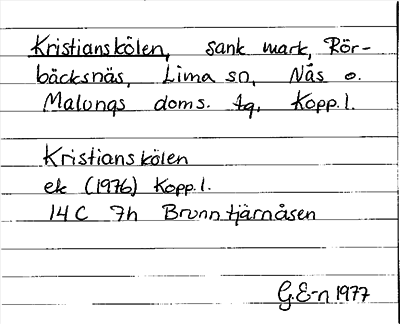 Kristianskölen, sank mark, Rör-
bäcksnäs, Lima sn, Nås o.
Malungs doms. tg, Kopp.l.
Kristianskölen
ek (1976) Kopp.l.
14C 7h Brunntjärnåsen
G.E-n 1977